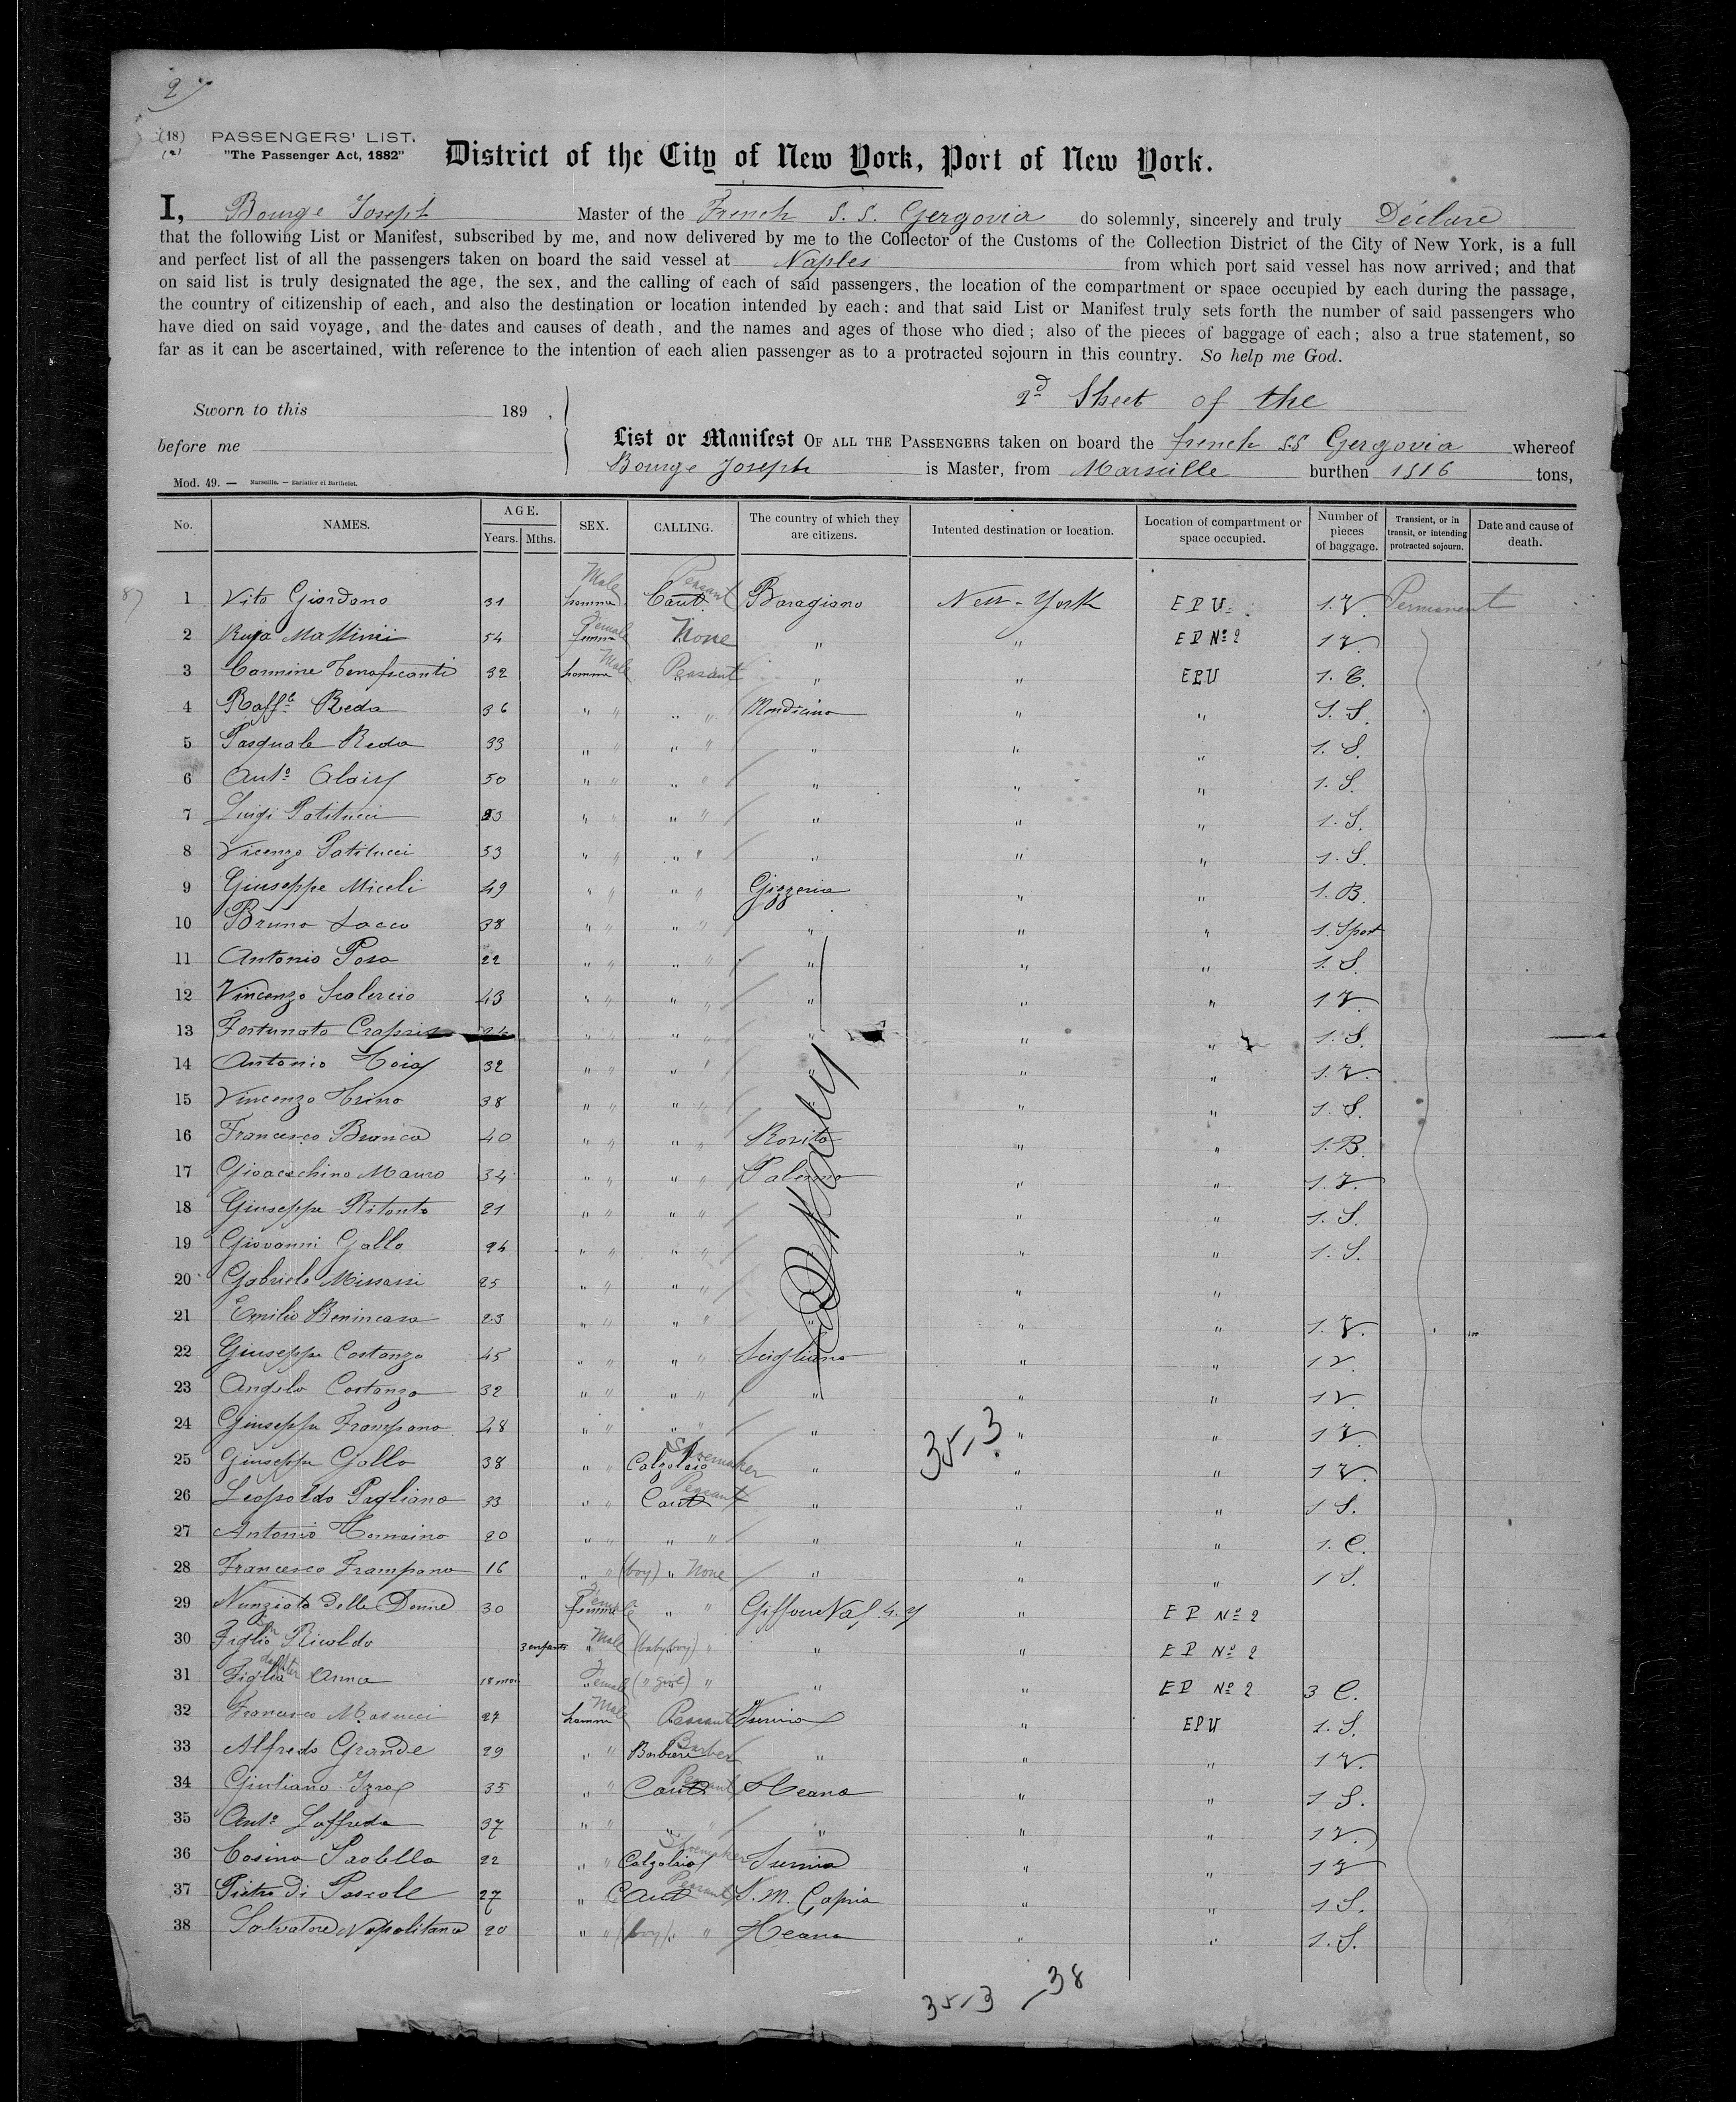 2
(18) PASSENGERS' LIST.
(2) "The Passenger Act, 1882"
District of the City of New York, Port of New York.
I, Bourge Joseph Master of the French S.S. Gergovia do solemnly, sincerely and truly Déclare
that the following List or Manifest, subscribed by me, and now delivered by me to the Collector of the Customs of the Collection District of the City of New York, is a full
and perfect list of all the passengers taken on board the said vessel at Naples from which port said vessel has now arrived; and that
on said list is truly designated the age, the sex, and the calling of each of said passengers, the location of the compartment or space occupied by each during the passage,
the country of citizenship of each, and also the destination or location intended by each: and that said List or Manifest truly sets forth the number of said passengers who
have died on said voyage, and the dates and causes of death, and the names and ages of those who died; also of the pieces of baggage of each; also a true statement, so
far as it can be ascertained, with reference to the intention of each alien passenger as to a protracted sojourn in this country. So help me God.
2d Sheet of the
Sworn to this 189 ,
before me
List or Manifest OF ALL THE PASSENGERS taken on board the french SS Gergovia whereof
Bourge Joseph is Master, from Marseille burthen 1916 tons,
Mod. 49. — Marseille. — Barlatier et Barthelet.
No. NAMES. AGE. Years. Mths. SEX. CALLING. The country of which they are citizens. Intented destination or location. Location of compartment or space occupied. Number of pieces of baggage. Transient, or in transit, or intending protracted sojourn. Date and cause of death.
87
1 Vito Giordano 31 homme Male Cont. Peasant Baragiano New-York EPU 1.V. Permanent
2 Massimei 54 femme Female None " " EP No 2 1 V.
3 Carmine 32 homme Male " Peasant " " EPU 1. C.
4 Raffle Reda 36 " " " " Mendicino " " 1. S.
5 Pasquale Reda 33 " " " " " " " 1. S.
6 Anto 50 " " " " " " " 1. S.
7 Luigi Patitucci 23 " " " " " " " 1. S.
8 Vicenzo Patitucci 53 " " " " " " " 1. S.
9 Giuseppe Miceli 49 " " " " Gizzeria " " 1. B.
10 Bruno Sacco 38 " " " " " " " 1. Sport
11 Antonio Posa 22 " " " " " " " 1. S.
12 Vincenzo Scalercio 43 " " " " " " " 1 V
13 Fortunato 24 " " " " " " " 1. S.
14 Antonio 32 " " " " " " 1. V.
15 Vincenzo 38 " " " " " " 1. S.
16 Francesco Bronca 40 " " " " Rovito " " 1. B.
17 Gioacechino Mauro 34 " " " " Palermo " " 1. V.
18 Giuseppe Ritonto 21 " " " " " " 1. S.
19 Giovanni Gallo 24 " " " " " " 1. S.
20 Gabriele Missassi 25 " " " " " "
21 Emilio Benincasa 23 " " " " " " " 1. V.
22 Giuseppe Costanzo 45 " " " " Scigliano " " 1 V.
23 Angelo Costanzo 32 " " " " " " " 1 V.
24 Giuseppe Trampano 48 " " " " " " " 1 V.
25 Giuseppe Gallo 38 " " Calzolaio Shoemaker " " " 1 V.
26 Leopoldo Pagliano 33 " " Cont Peasant " " " 1 S.
27 Antonio Tomaino 20 " " " " " " " 1. C.
28 Francesco Trampano 16 " " (boy) " None " " " 1 S.
29 Nunziata delle Donne 30 femme Female " " Giffoni Val. " EP No 2
30 Figlio Ricoldo 3 enfants " Male (baby boy) " " " EP No 2
31 Figlia daughter Anna 18 mois " Female (" girl) " " " EP No 2 3 C.
32 Francesco Masucci 27 homme Male Peasant Isernia " EPU 1. S.
33 Alfredo Grande 29 " " Barbiere Barber " " " 1 V.
34 Giuliano Izzo 35 " " Cont Peasant " " 1 S.
35 Anto Loffreda 37 " " " " " " " 1 V.
36 Cosimo Paolella 22 " " Calzolaio Shoemaker Isernia " " 1 V
37 Pietro di Pascale 27 " Cont Peasant S. M. Capua " " 1 S.
38 Salvatore Napolitano 20 " " (boy) " " " " 1. S.
Italy
35-3
35-3 -38